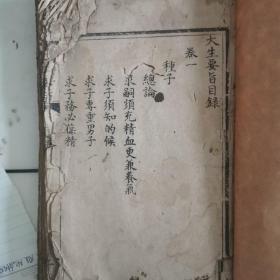 大生要旨目錄
卷一
種子
總論
求嗣須充精血更兼養氣
求子須知的候
求子專重男子
求子務必葆精